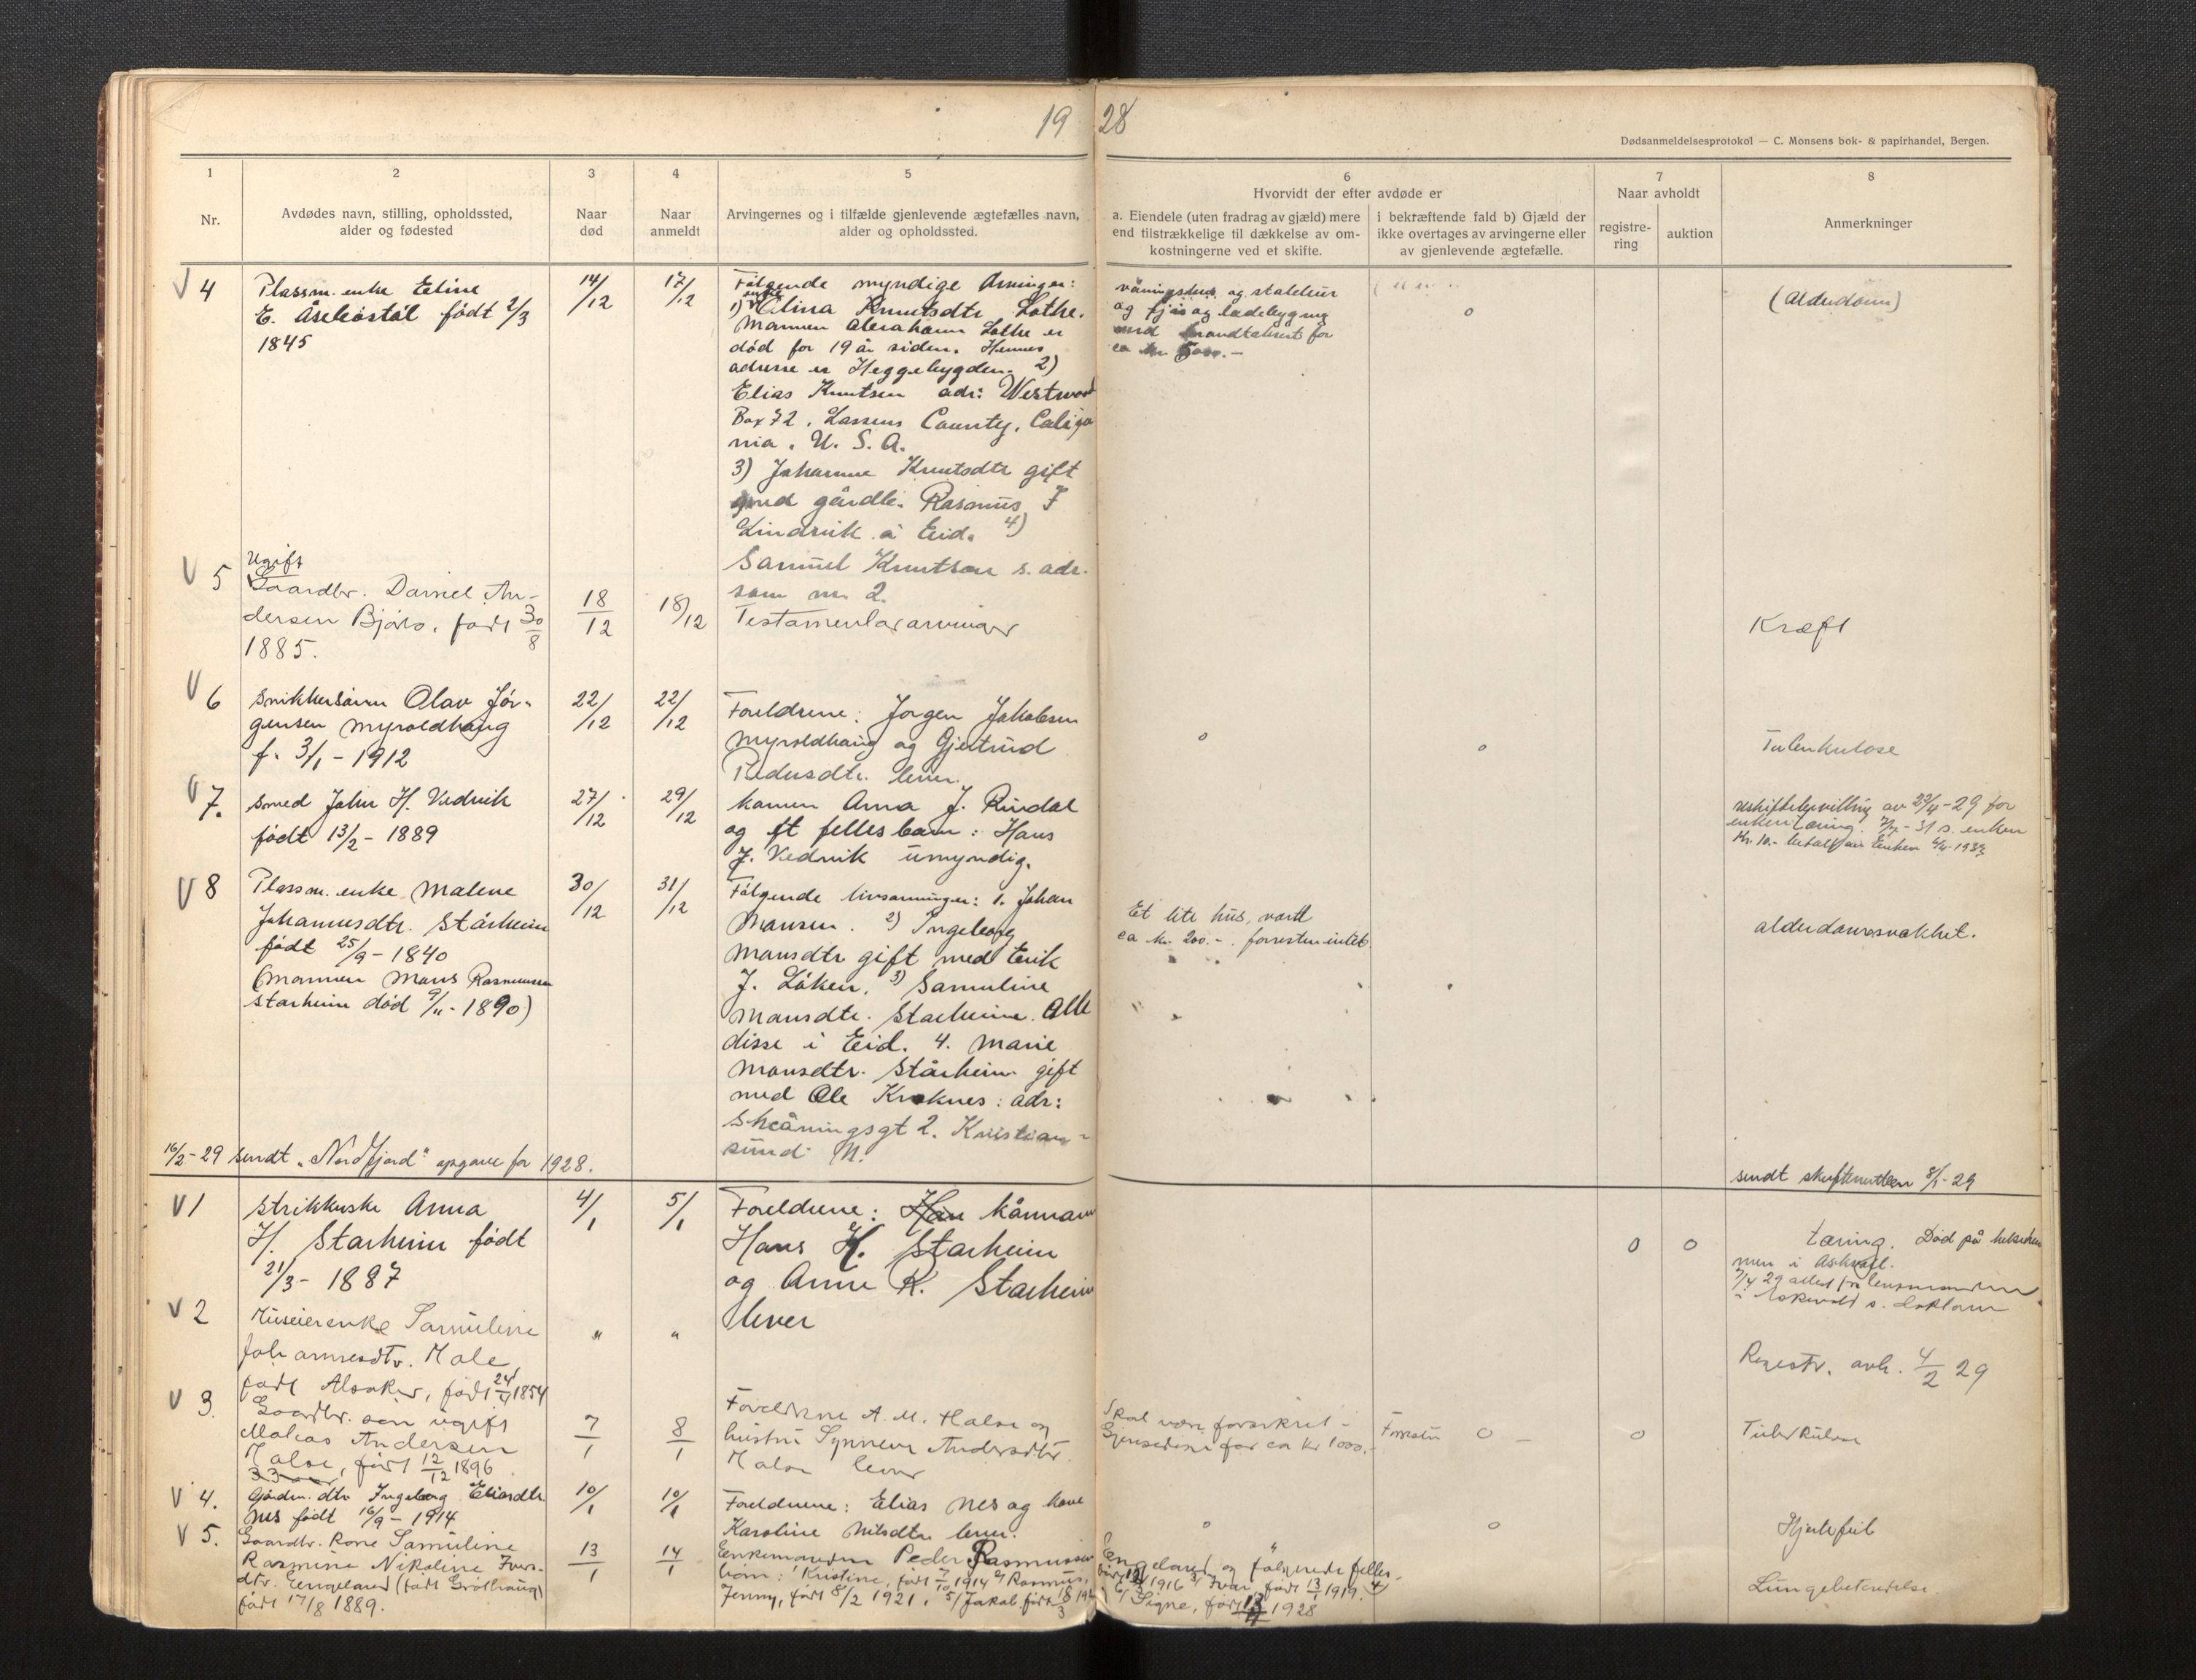 19 28
Dødsanmeldelsesprotokol — C. Monsens bok- & papirhandel, Bergen.
1
Nr.
2
Avdødes navn, stilling, opholdssted,
alder og fødested
3
Naar
død
4
Naar
anmeldt
5
Arvingernes og i tilfælde gjenlevende ægtefælles navn,
alder og opholdssted.
6
Hvorvidt der efter avdøde er
a. Eiendele (uten fradrag av gjæld) mere
end tilstrækkelige til dækkelse av om-
kostningerne ved et skifte.
i bekræftende fald b) Gjæld der
ikke overtages av arvingerne eller
av gjenlevende ægtefælle.
7
Naar avholdt
registre-
ring
auktion
8
Anmerkninger
V 4
Plassm. enke Eline
E. Åsebøstøl født 2/3
1845
14/12
17/12
Følgende myndige Arvinger:
1) enke Elina Knutsdtr Lothe.
Mannen Abraham Lothe er
død for 19 år siden. Hennes
adresse er Heggebygden. 2)
Elias Knutsen adr: Westwood
Box 72, Lassens County, Califo
nia, U. S. A.
3) Johanne Knutsdtr gift
med gårdbr. Rasmus J
Lindvik å Eid. 4)
Samuel Knutsen s. adr.
som nr 2.
våningshus og stabbur
og fjøs og ladebygning
med brandtakst for
ca kr. 5000.-
o
(Alderdom)
V 5
Ugift
Gaardbr. Daniel An-
dersen Bjørlo, født 30/8
1885.
18/12
18/12
Testamentararvinger
Kræft
V 6
Snikkersønn Olav Jør-
gensen Myroldhaug
f. 3/1 - 1912
22/12
22/12
Foreldrene: Jørgen Jakobsen
Myroldhaug og Gjertrud
Pedersdtr. lever.
o
o
Tuberkulose
V 7.
Smed John H. Vedvik
født 13/2 - 1889
27/12
29/12
konen Anna J. Rindal
og et felles barn: Hans
J. Vedvik umyndig.
uskiftebevilling av 29/4 - 29 for
enken tæring. - 31 s. enken
Kr. 10.- betalt av Enken
V 8
Plassm. enke Malene
Johannesdtr. Stårheim
født 25/9 - 1840
(Mannen Mons Rasmussen
Starheim død 9/11 - 1890)
30/12
31/12
Følgende livsarvinger: 1. Johan
Monsen. 2) Ingeborg
Monsdtr gift med Erik
J. Løken. 3) Samuline
Monsdtr. Starheim. Alle
disse i Eid. 4. Marie
Monsdtr. Stårheim gift
med Ole Kroknes: adr:
Skoåningsgt 2. Kristian-
sund N.
Et lite hus, verdt
ca kr. 200.- . forresten intet
alderdomssvakhet.
16/2 - 29 sendt "Nordfjord" opgave for 1928.
sendt skifteretten 8/1 - 29
V 1
Strikkerske Anna
H. Starheim født
21/3 - 1887
4/1
5/1
Foreldrene: kårmann
Hans H. Starheim
og Anne R. Starheim
lever
o
o
tæring. Død på helsehei
men i Askvoll.
29 attest fra lensmannen
i Askvoll s.
V 2
Huseierenke Samuline
Johannesdtr. Hale
født Alsaker, født 24/4 1854
"
"
Registr. avh. 4/2 29
V 3.
Gaardbr. søn ugift
Matias Andersen
Halse, født 12/12 1896
7/1
8/1
Foreldrene A. M. Halse og
hustru Synneve Andersdtr.
Halse lever
Skal være forsikret -
for ca kr 1000.-
Forresten o —
o
Tuberkulose
V 4.
Gårdm. dtr Ingeborg Eliasdtr
Nes født 16/9 - 1914
10/1
10/1
Foreldrene: Elias Nes og kone
Karoline Nilsdtr lever.
o
o
Hjertefeil
V 5.
Gaardbr. kone Samuline
Rasmine Nikoline Ivers-
dtr. Engeland (født Grøthaug)
født 17/8 1889.
13/1
14/1
Enkemannen Peder Rasmussen Engeland og følgende felles-
børn: 1 Kristine, født 7/10 1914 2/ Rasmus, 1916 3/ Ivar, født 13/1 1919. 4/
Jenny, født 8/2 1921, 5/ Jakob født 18/3 6/ Signe, født 1928
Lungebetendelse.